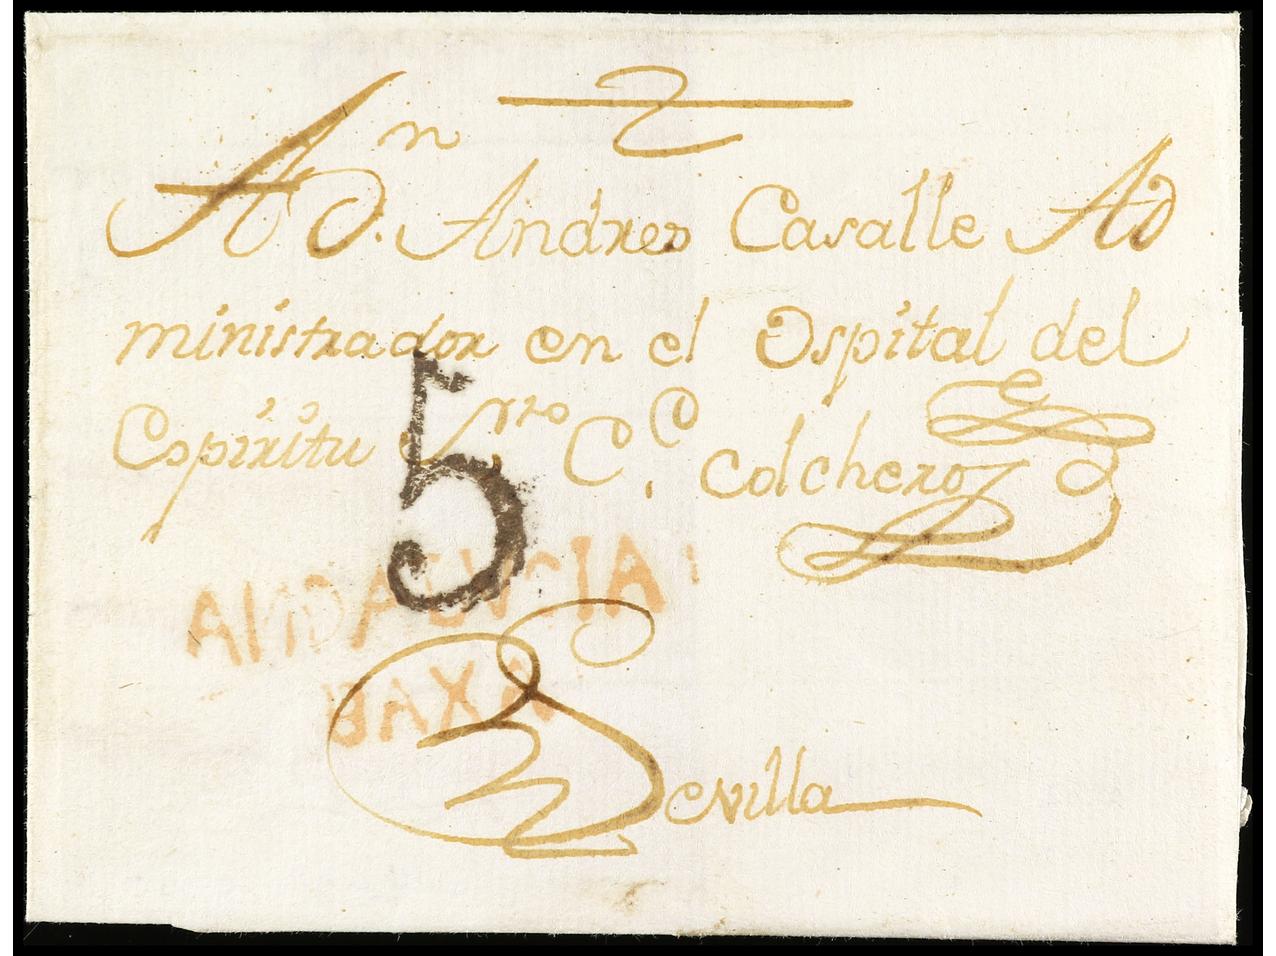 A Dn. Andres Casalle Ad
ministrador en el Ospital del
Espiritu Srto C. C. Colcheroz
5
ANDALUCIA
BAXA
Sevilla